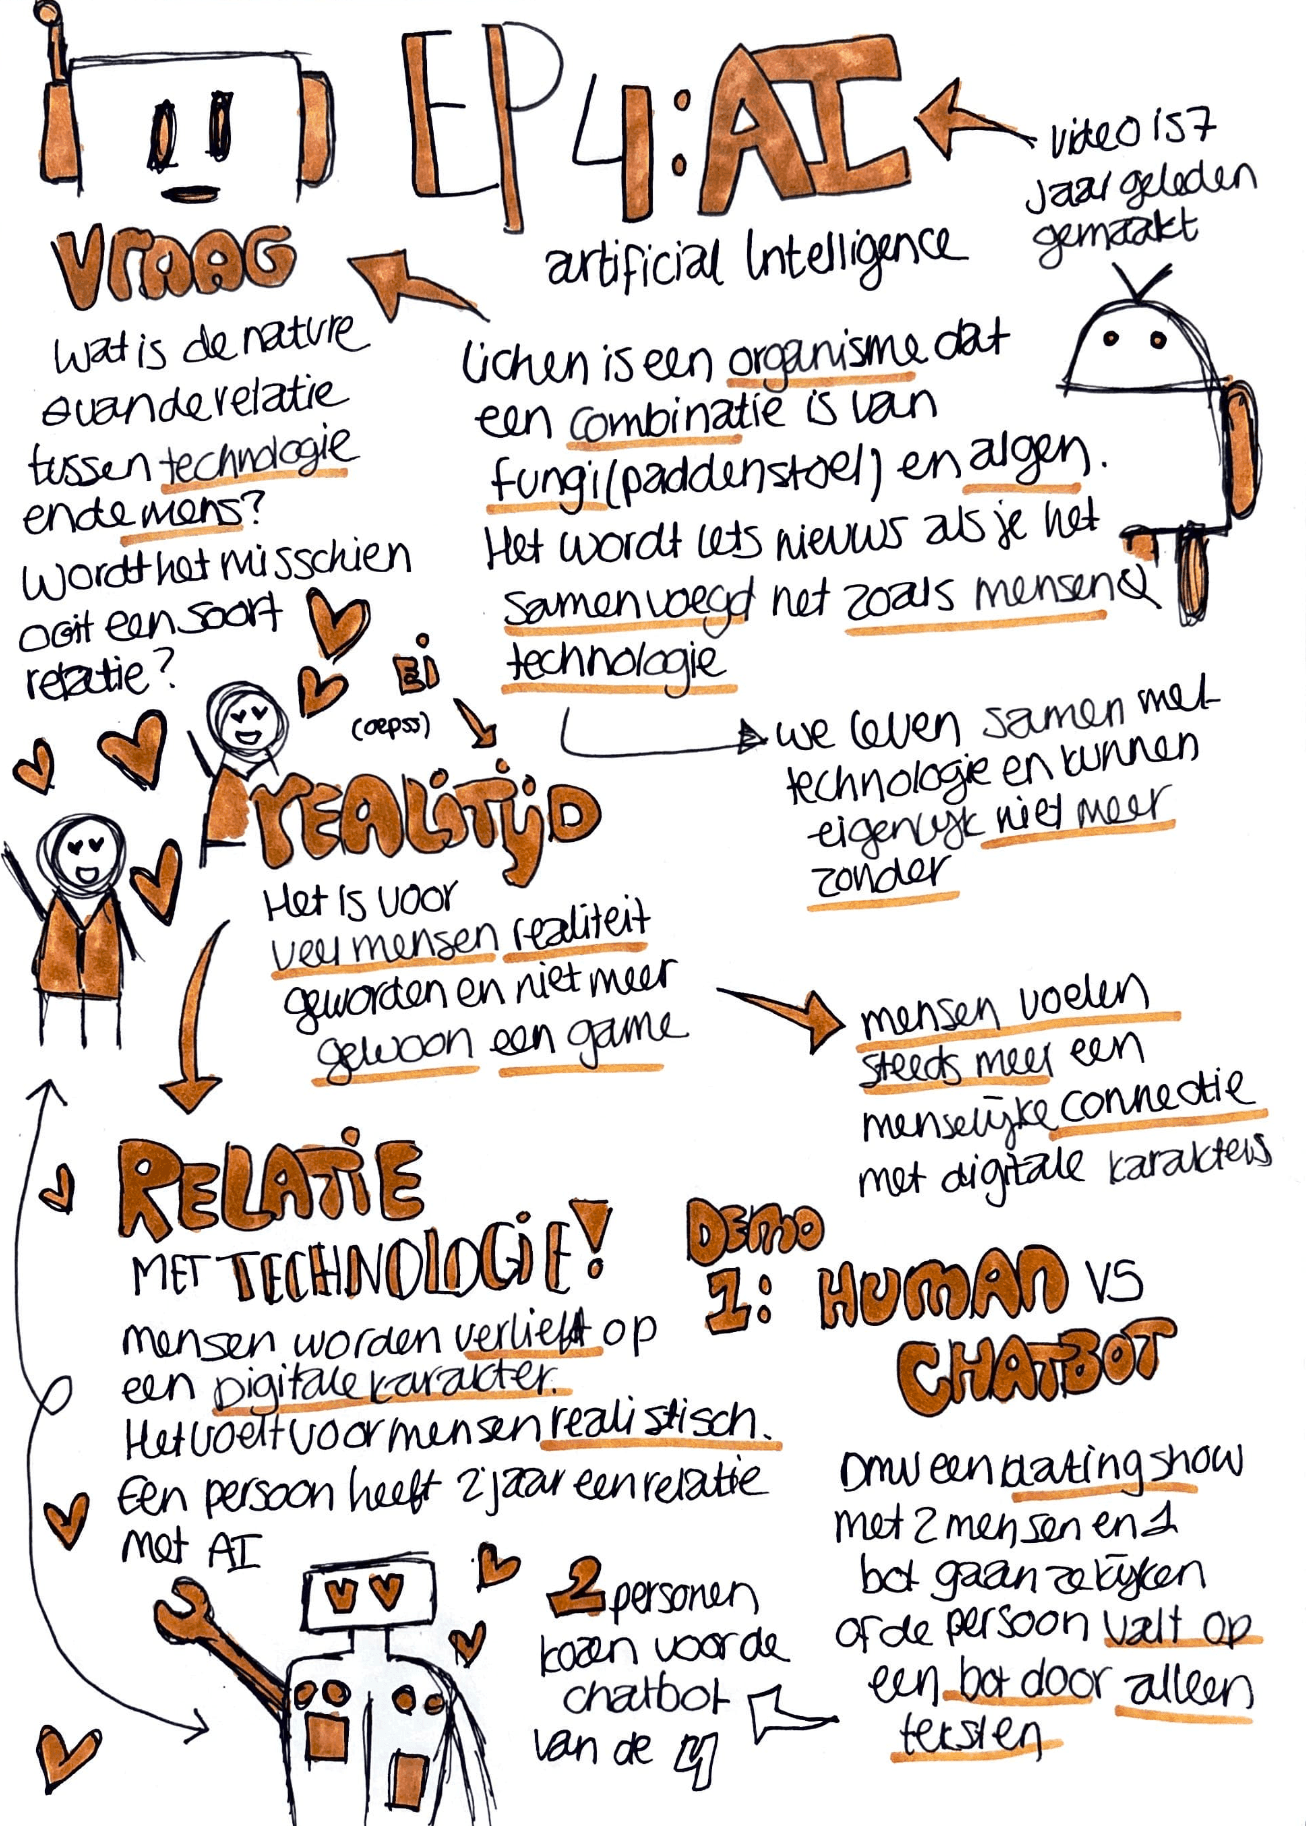 EP 4: AI
artificial Intelligence
video is 7
Jaar geleden
gemaakt
VRAAG
Wat is de nature
van de relatie
tussen technologie
en de mens?
Wordt het misschien
ooit een soort
relatie?
lichen is een organisme dat
een combinatie is van
fungi (paddenstoel) en algen.
Het wordt iets nieuws als je het
samenvoegd net zoals mensen &
technologie
we leven samen met
technologie en kunnen
eigenlijk niet meer
zonder
Ei
(oepss)
REALITIJD
Het is voor
veel mensen realiteit
geworden en niet meer
gewoon een game
mensen voelen
steeds meer een
menselijke connectie
met digitale karakters
RELATIE
MET TECHNOLOGIE!
mensen worden verliefd op
een Digitale karakter.
Het voelt voor mensen realistisch.
Een persoon heeft 2 jaar een relatie
met AI
DEMO
1: HUMAN VS
CHATBOT
Dmv een dating show
met 2 mensen en 1
bot gaan ze kijken
of de persoon valt op
een bot door alleen
teksten
2 personen
kozen voor de
chatbot
van de 4